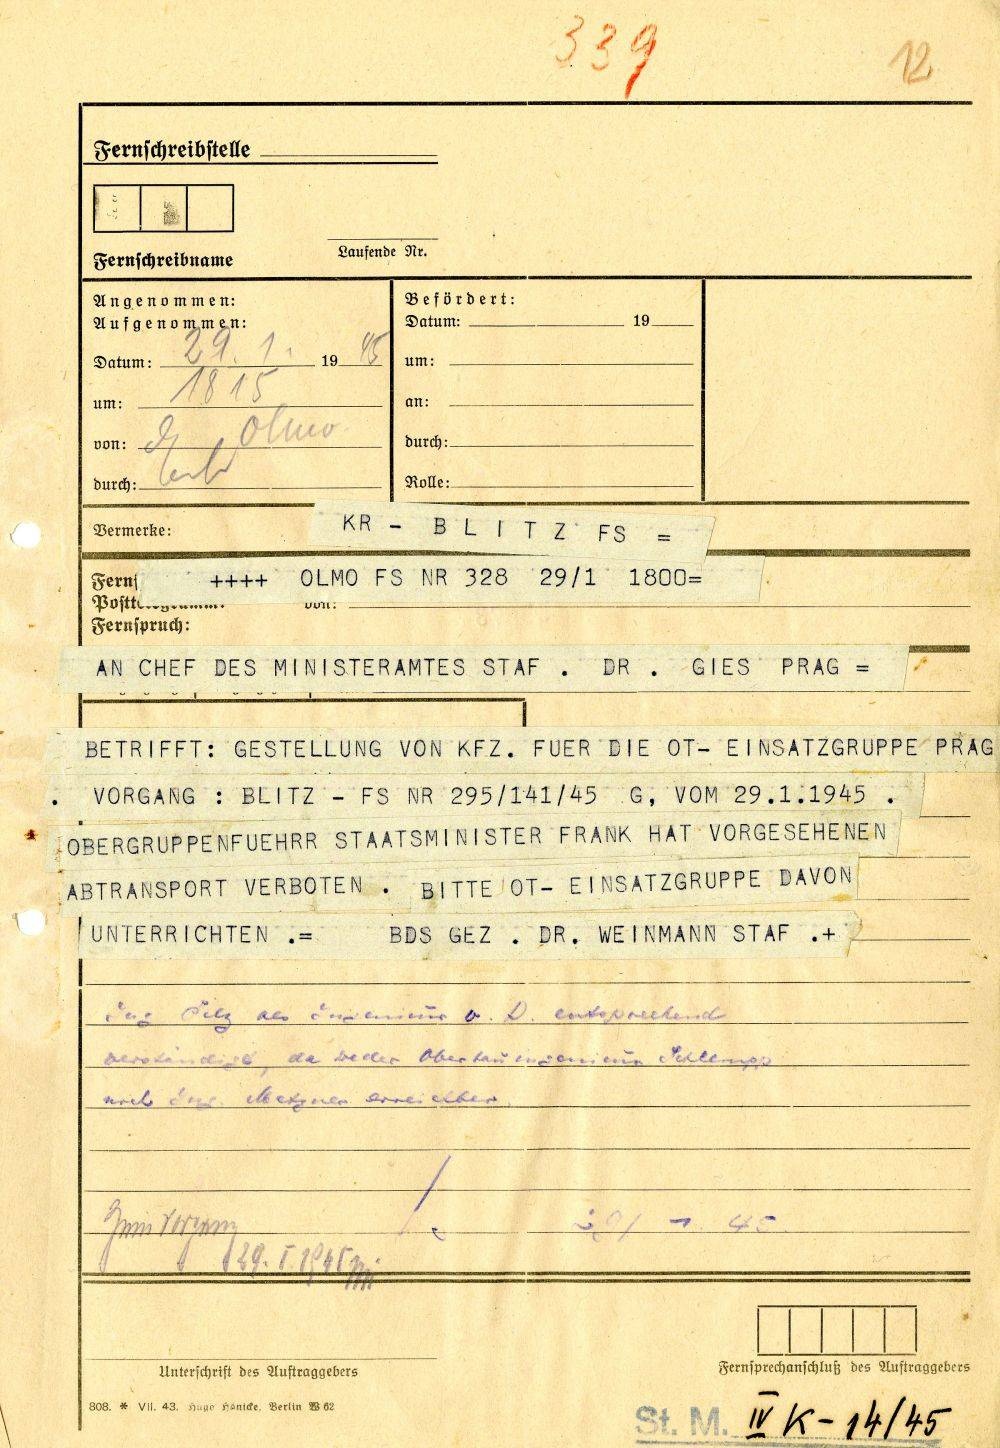 339
12
Fernschreibstelle
Fernschreibname
Laufende Nr.
Angenommen:
Aufgenommen:
Datum: 29. 1. 1945
um: 1815
von: Olmo
durch:
Befördert:
Datum: 19
um:
an:
durch:
Rolle:
Vermerke:
KR - B L I T Z FS =
++++ OLMO FS NR 328 29/1 1800=
von:
Fernspruch:
AN CHEF DES MINISTERAMTES STAF . DR . GIES PRAG =
BETRIFFT: GESTELLUNG VON KFZ. FUER DIE OT- EINSATZGRUPPE PRAG
. VORGANG : BLITZ - FS NR 295/141/45 G, VOM 29.1.1945 .
OBERGRUPPENFUEHRR STAATSMINISTER FRANK HAT VORGESEHENEN
ABTRANSPORT VERBOTEN . BITTE OT- EINSATZGRUPPE DAVON
UNTERRICHTEN .= BDS GEZ . DR. WEINMANN STAF .+
Ing Pelz als Ingenieur v. D. entsprechend
verständigt, da weder Oberbauingenieur Schlempp
noch Ing. Metzner erreichbar.
29/1. 45.
Zum Vorgang
29. I. 1945
Unterschrift des Auftraggebers
Fernsprechanschluß des Auftraggebers
808. * VII. 43. Hugo Hönicke, Berlin W 62
St. M. IV K - 14/45